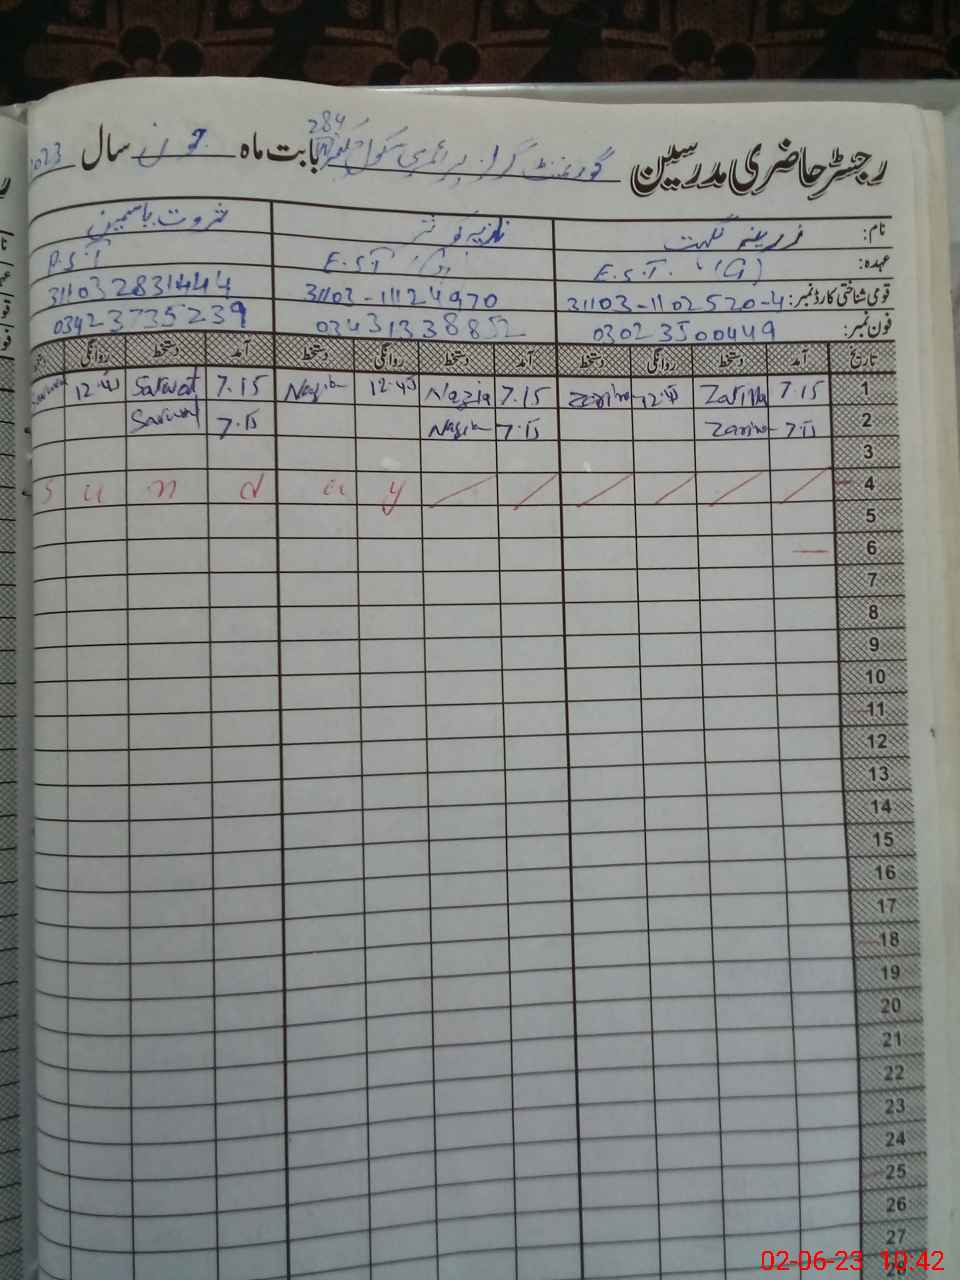 284
رجسٹر حاضری مدرسین گورنمنٹ گرلز پرائمری سکول بابت ماہ جون سال 2023
نام: زرینہ نگہت نازیہ کوثر ثروت یاسمین
عہدہ: E.S.T. (G) E.S.T (G) P.S.T
قومی شناختی کارڈ نمبر: 31103-1102520-4 31103-11124970 31103 2831444
فون نمبر: 03023500449 03431338852 03423735239
تاریخ آمد دستخط روانگی دستخط آمد دستخط روانگی دستخط آمد دستخط روانگی
1 7.15 Zarina 12.45 Zarina 7.15 Nazia 12.45 Nazia 7.15 Sarwat 12.45
2 7.15 Zarina 7.15 Nazia 7.15 Sarwat
3
4 S u n d a y
5
6
7
8
9
10
11
12
13
14
15
16
17
18
19
20
21
22
23
24
25
26
27
28
02-06-23 10:42